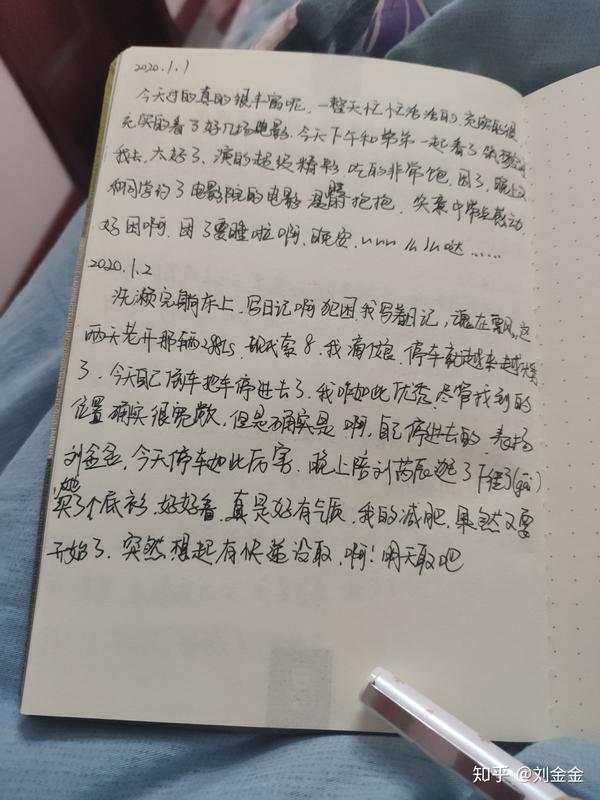 2020.1.1
今天过的真的很丰富呢,一整天忙忙活活的,充实的很
充实的看了好几场电影.今天下午和弟弟一起看了
我去,太好了,演的超级精彩 吃的非常饱,困了,晚上又
和同学约了电影院的电影 抱抱,失意中带点感动
好困啊,困了要睡啦啊,晚安, 哒......
2020.1.2
洗漱完躺床上,写日记啊犯困,我写着日记,魂在飘,这
两天老开那辆 现代 8,我滴娘,停车就越来越
了,今天自己倒车把车停进去了,我咋如此优秀,尽管找到的
位置确实很宽敞,但是确实是 啊,自己停进去的,表扬
刘金金,今天停车如此厉害,晚上陪刘芮辰逛了下街(gai)
她
买了个底衫,好好看,真是好有气质,我的减肥,果然又要
开始了,突然想起有快递没取,啊!明天取吧
知乎 @刘金金